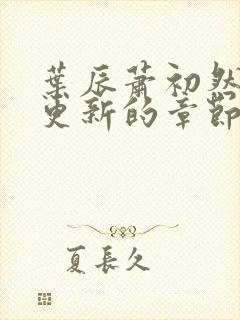 葉辰蕭初然
更新的章節
夏長久